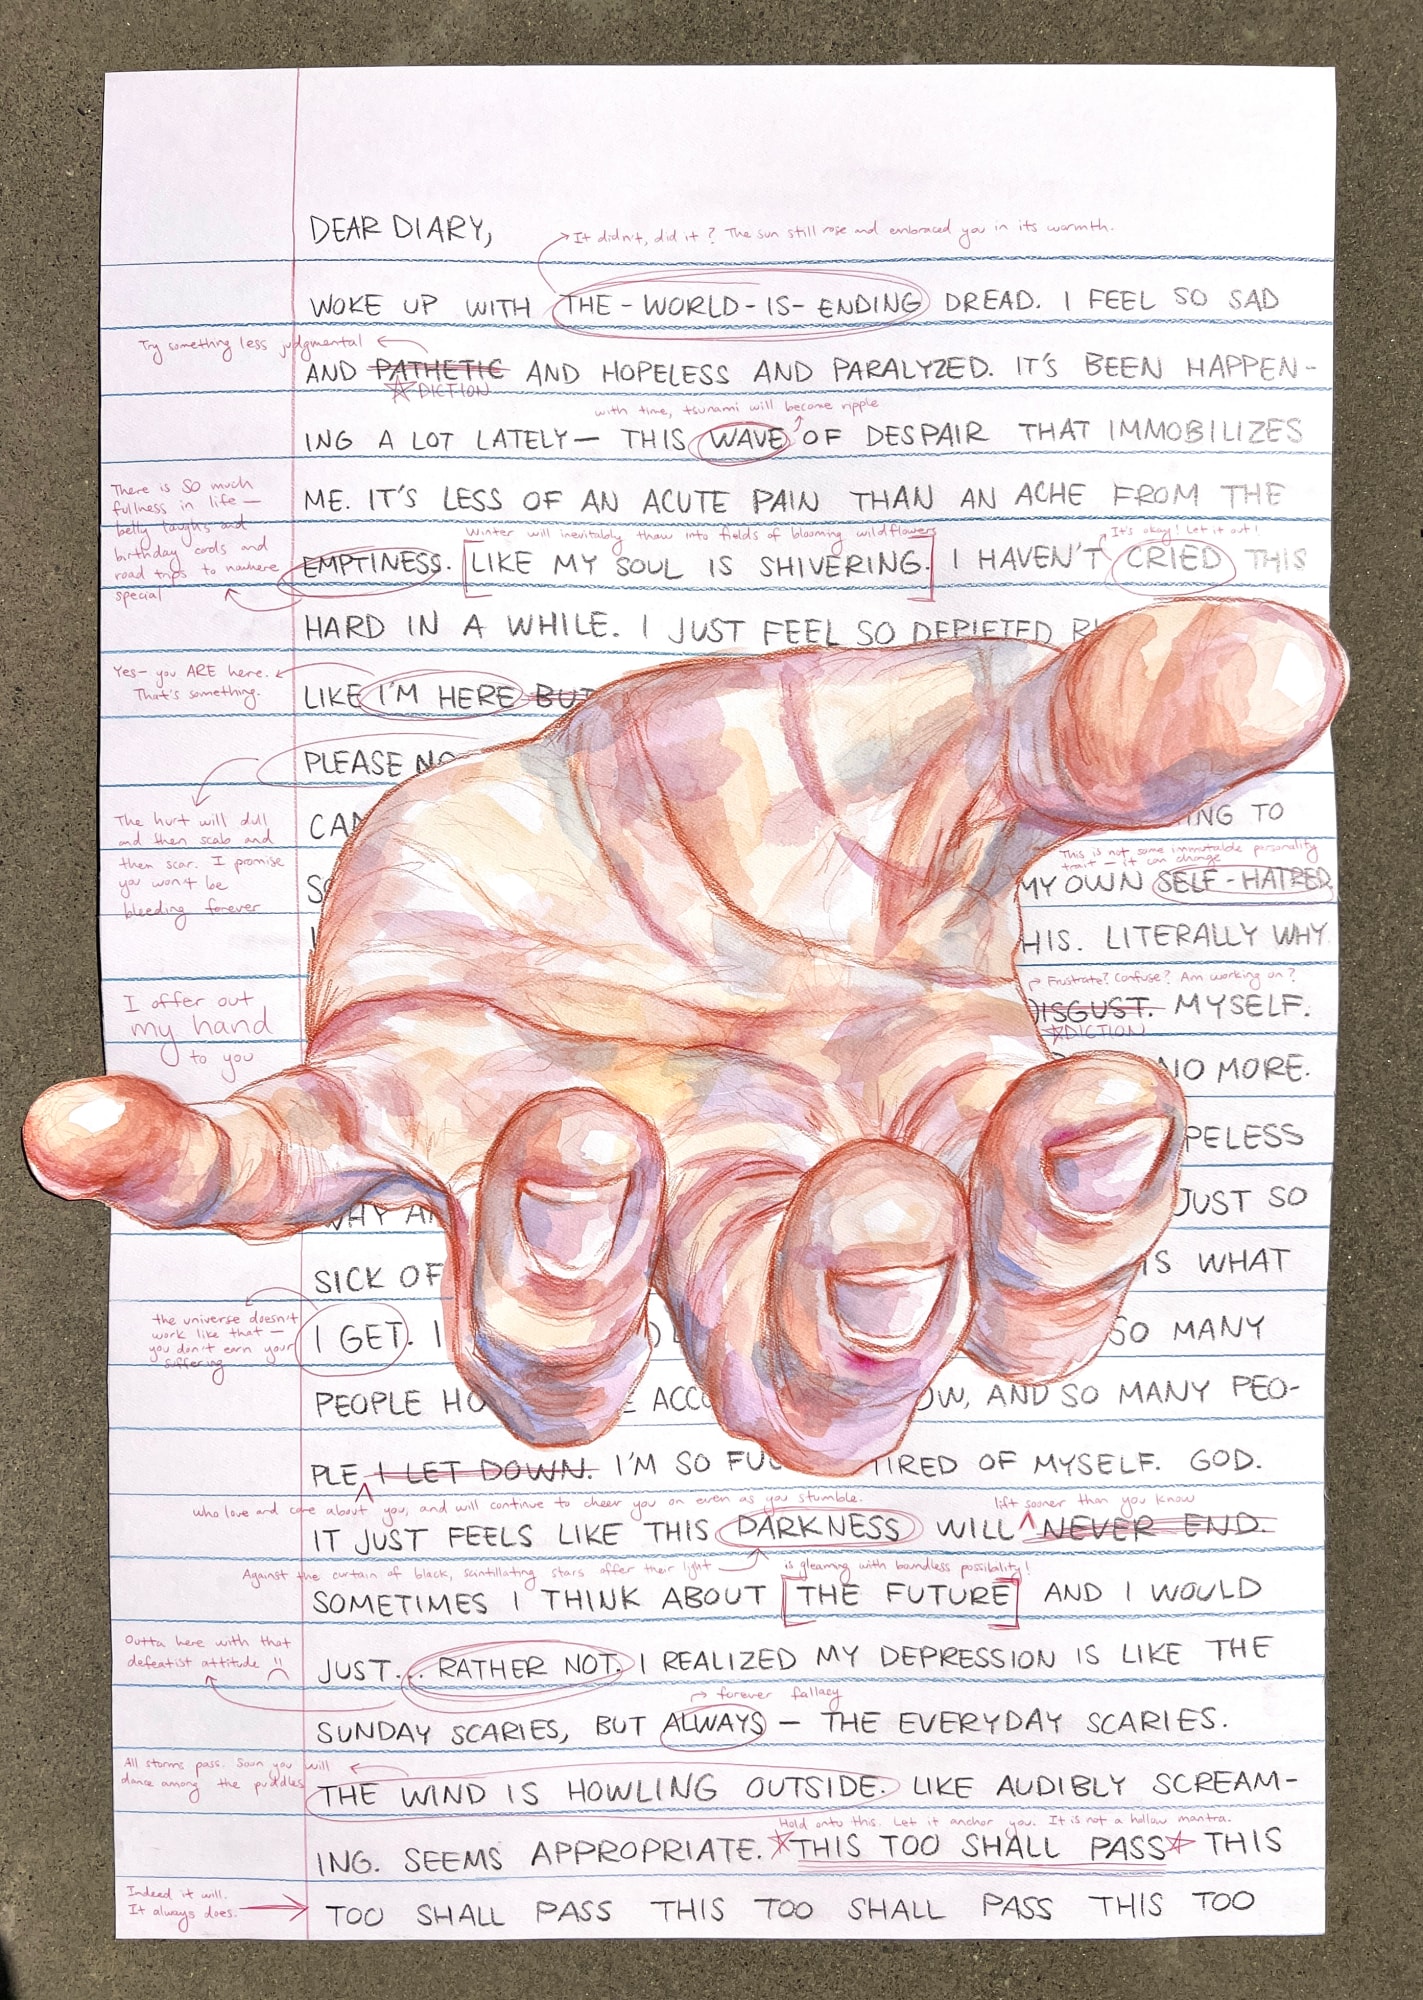 DEAR DIARY,
It didn't, did it? The sun still rose and embraced you in its warmth.
WOKE UP WITH THE-WORLD-IS-ENDING DREAD. I FEEL SO SAD
Try something less judgmental
AND PATHETIC AND HOPELESS AND PARALYZED. IT'S BEEN HAPPEN-
DICTION
with time, tsunami will become ripple
ING A LOT LATELY— THIS WAVE OF DESPAIR THAT IMMOBILIZES
There is SO much
fullness in life—
belly laughs and
birthday cards and
road trips to nowhere
special
ME. IT'S LESS OF AN ACUTE PAIN THAN AN ACHE FROM THE
Winter will inevitably thaw into fields of blooming wildflowers
It's okay! Let it out!
EMPTINESS. LIKE MY SOUL IS SHIVERING. I HAVEN'T CRIED THIS
HARD IN A WHILE. I JUST FEEL SO DEPLETED
Yes— you ARE here.
That's something.
LIKE I'M HERE BUT
PLEASE
The hurt will dull
and then scab and
then scar. I promise
you won't be
bleeding forever
TO
This is not some immutable personality
trait — it can change
MY OWN SELF-HATRED
LITERALLY WHY
I offer out
my hand
to you
Frustrate? Confuse? Am working on?
DISGUST. MYSELF.
DICTION
NO MORE.
JUST SO
WHY
SICK OF
WHAT
the universe doesn't
work like that —
you don't earn your
suffering
I GET. I
SO MANY
PEOPLE
AND SO MANY PEO-
PLE I LET DOWN. I'M SO
TIRED OF MYSELF. GOD.
who love and care about you, and will continue to cheer you on even as you stumble.
lift sooner than you know
IT JUST FEELS LIKE THIS DARKNESS WILL NEVER END.
Against the curtain of black, scintillating stars offer their light
is gleaming with boundless possibility!
SOMETIMES I THINK ABOUT THE FUTURE AND I WOULD
Outta here with that
defeatist attitude
JUST... RATHER NOT. I REALIZED MY DEPRESSION IS LIKE THE
forever fallacy
SUNDAY SCARIES, BUT ALWAYS — THE EVERYDAY SCARIES.
All storms pass. Soon you will
dance among the puddles
THE WIND IS HOWLING OUTSIDE. LIKE AUDIBLY SCREAM-
Hold onto this. Let it anchor you. It is not a hollow mantra.
ING. SEEMS APPROPRIATE. THIS TOO SHALL PASS THIS
Indeed it will.
It always does.
TOO SHALL PASS THIS TOO SHALL PASS THIS TOO